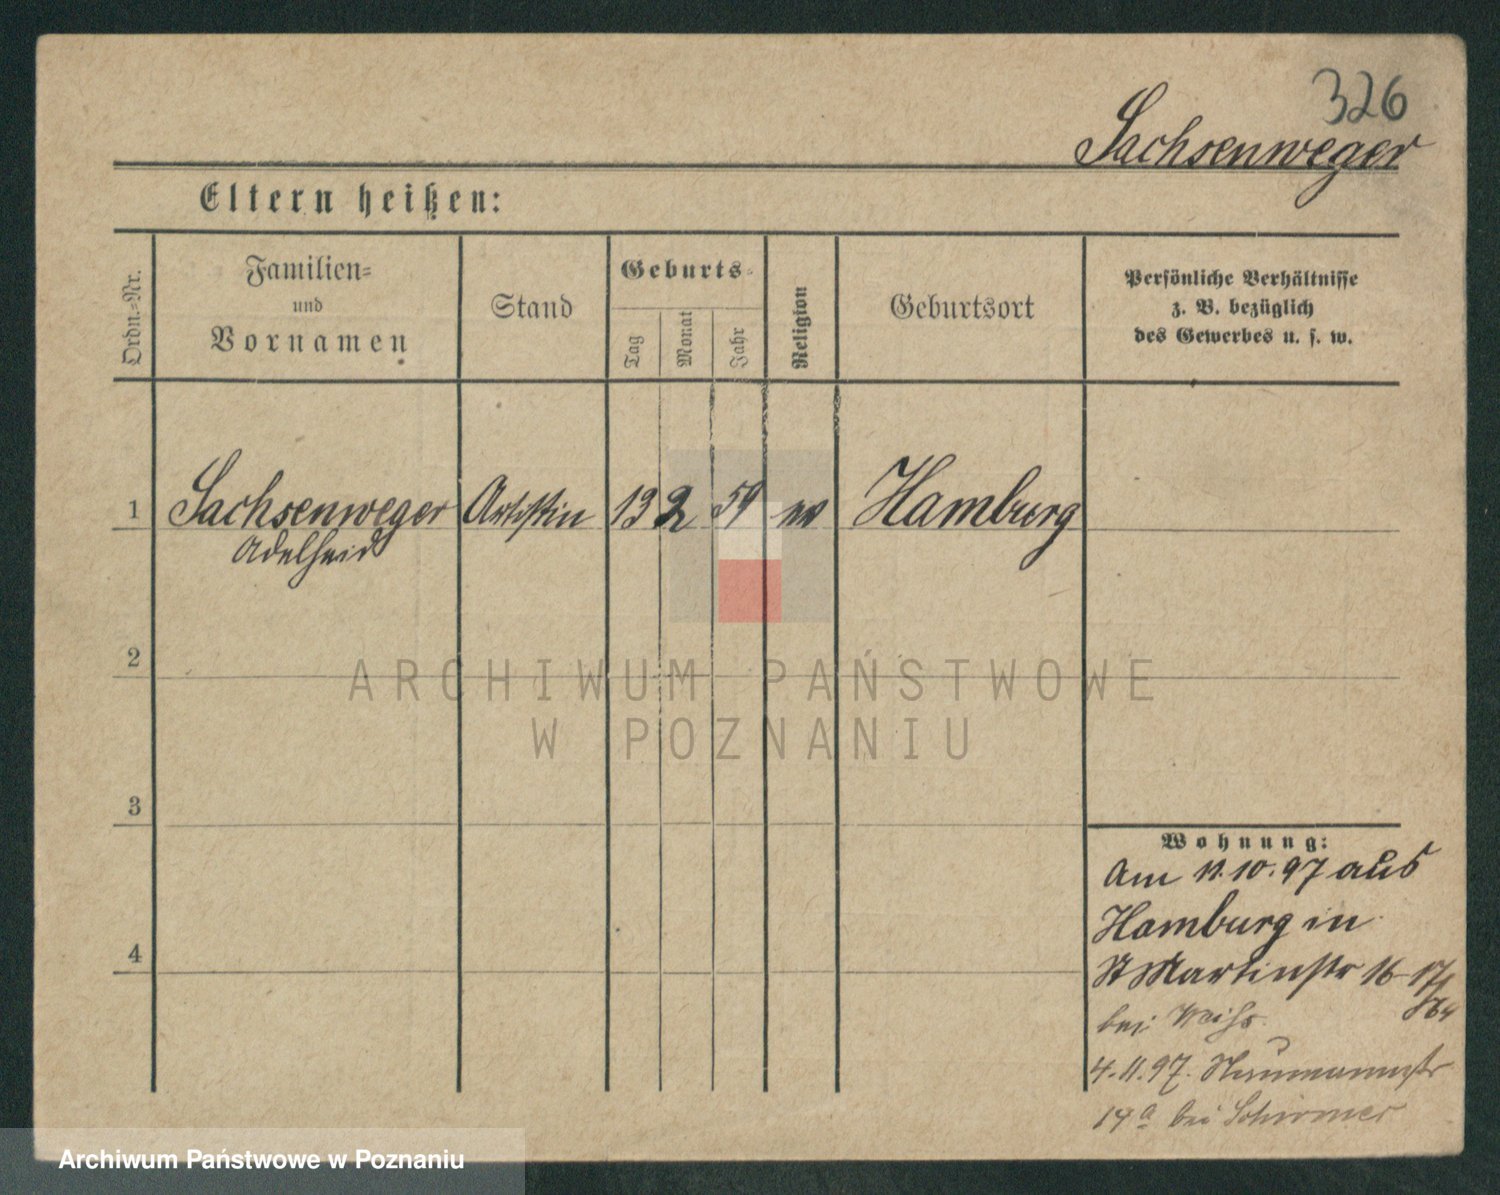 326
Sachsenweger
Eltern heißen:
Ordn.-Nr.
Familien-
und
Vornamen
Stand
Geburts-
Tag
Monat
Jahr
Religion
Geburtsort
Persönliche Verhältnisse
z. B. bezüglich
des Gewerbes u. s. w.
1 Sachsenweger Artistin 13 2 59 Hamburg
Adelheid
2
3
4
ARCHIWUM PAŃSTWOWE
W POZNANIU
Wohnung:
Am 11.10.97 aus
Hamburg in
St Martinstr 16-17
bei Weiss.
4.11.97. Naumannstr
14a bei Schirmer
Archiwum Państwowe w Poznaniu